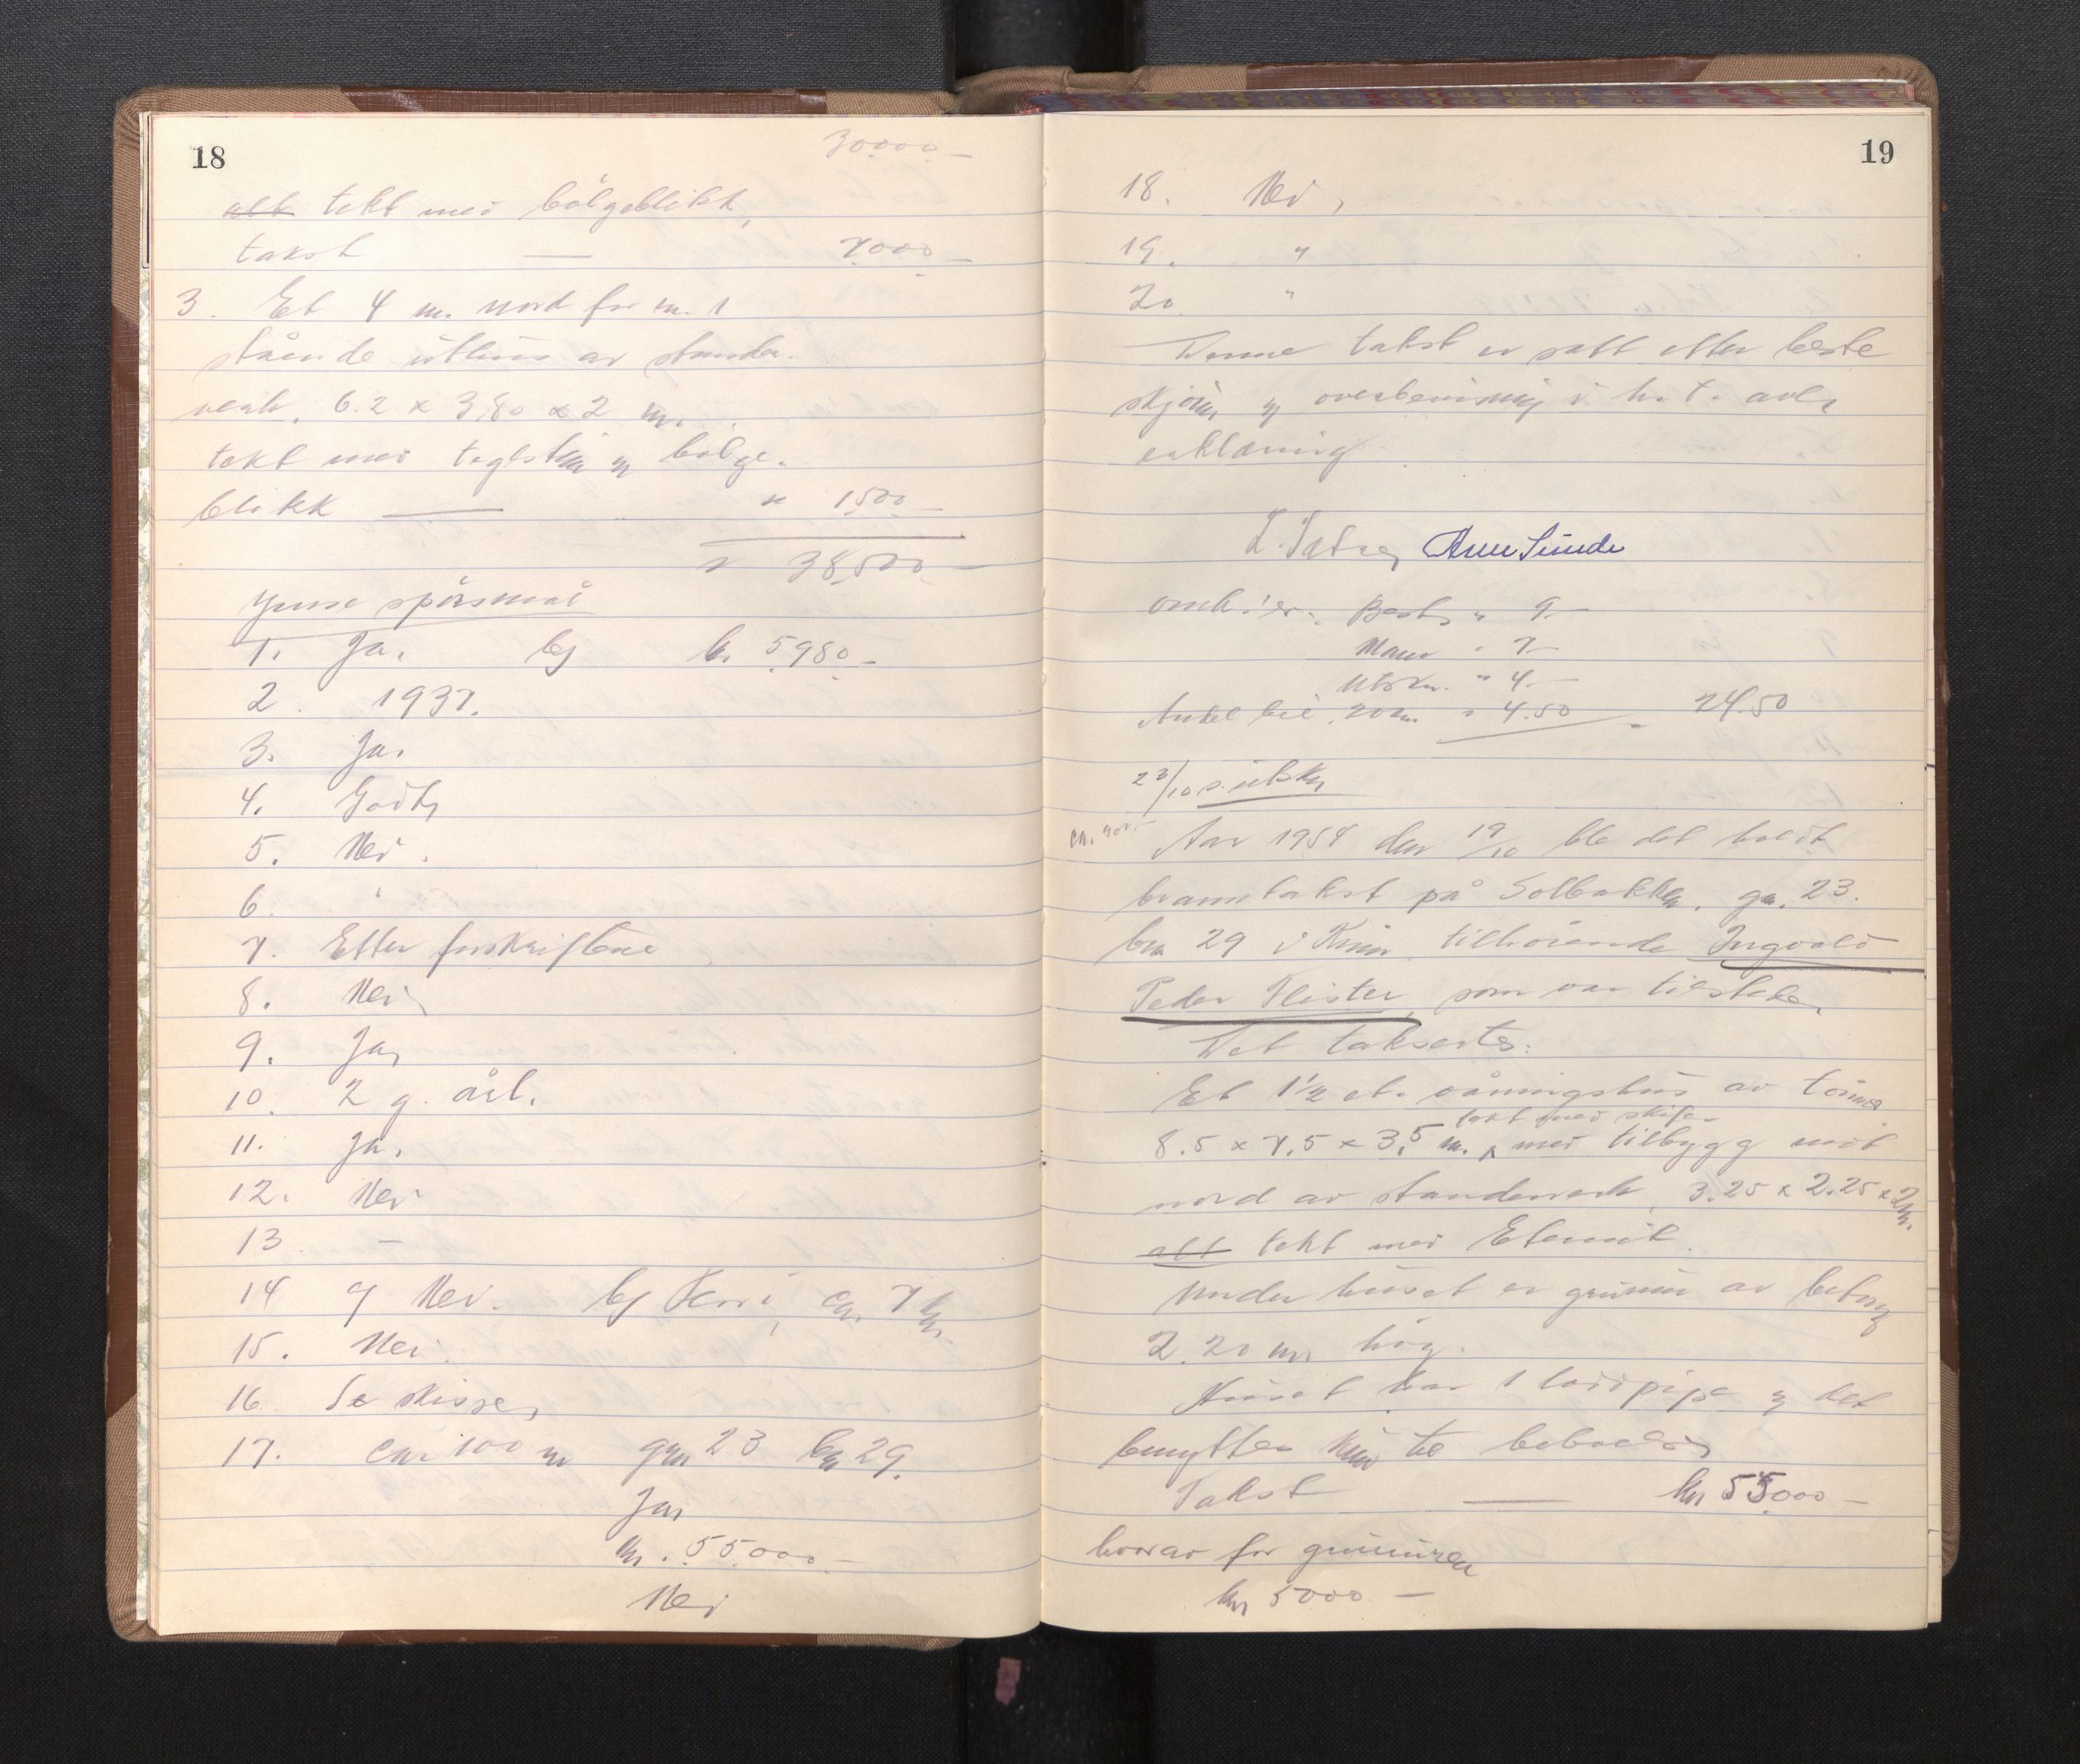 18
30000 –
alt tekt med bølgeblikk,
takst — 7000 –
3. Et 4 m. nord for nr. 1
stående uthus av stender-
verk. 6.2 x 3,80 x 2 m.
tekt med teglstein og bølge-
blikk — " 1500 –
" 38500 –
spørsmål
1. Ja. b) kr. 5980 –
2. 1937.
3. Ja.
4. Godt,
5. Nei.
6. "
7. Etter forskriftene
8. Nei,
9. Ja,
10. 2 g. årl.
11. Ja.
12. Nei
13. –
14 a) Nei. b) ca. 7 km.
15. Nei.
16. Se skisse,
17. ca. 100 m gnr 23 bnr 29.
Ja,
kr. 55000 –
Nei
19
18. Nei,
19. "
20. "
Denne takst er satt etter beste
skjønn og overbevisning i h. t. avl.
erklæring
Arne Sunde
omk.: Best. " 9 –
Mann " 7 –
Utskr. " 4. –
Andel bil 20 km " 4.50 = 24.50
23/10 s. utskr,
Aar 1954 den 19/10 ble det holdt
branntakst på Solbakken. gnr. 23.
bnr 29 i Kinn tilhørende Ingvald
Peder Klister, som var tilstede.
Det taksertes:
Et 1½ et. våningshus av tømmer
tekt med skifer
8.5 x 7,5 x 3,5 m. ^ med tilbygg mot
nord av stenderverk 3.25 x 2.25 x 2 m.
alt tekt med Eternit.
Under huset er grunnmur av betong
2.20 m høg.
Huset har 1 loddpipe og det
benyttes kun til beboelse,
Takst — kr 55000 –
hvorav for grunnmuren
kr 5000 –